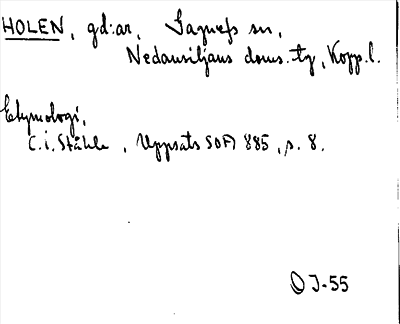 HOLEN, gd:ar, Gagnefs sn,
Nedansiljans doms. tg, Kopp. l.
Etymologi,
C. i. Ståhle, Uppsats SOFI 885, s. 8.
OJ-55